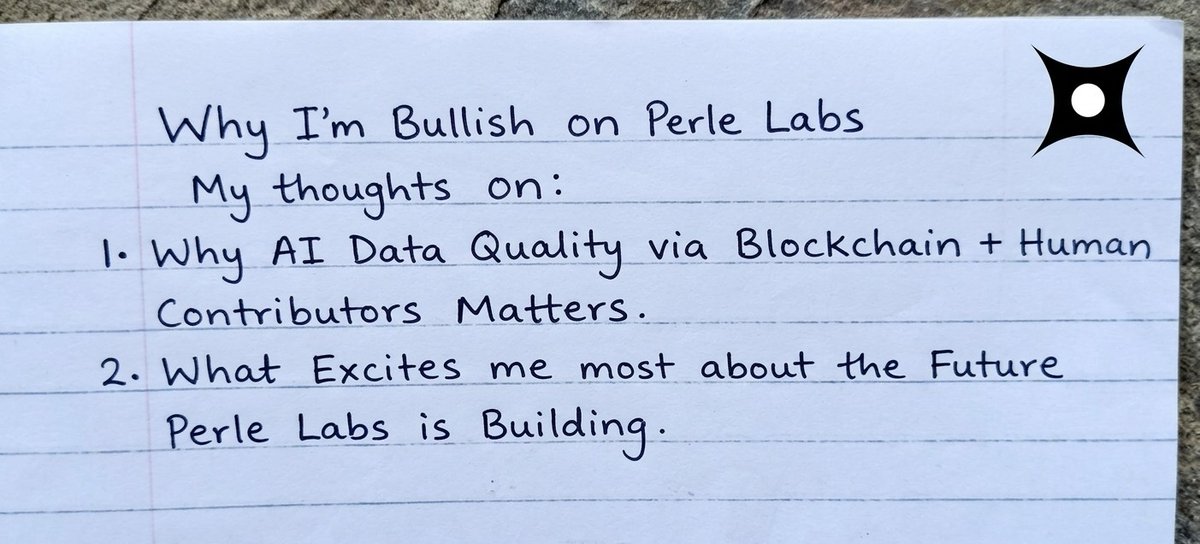 Why I'm Bullish on Perle Labs
My thoughts on:
1. Why AI Data Quality via Blockchain + Human
Contributors Matters.
2. What Excites me most about the Future
Perle Labs is Building.